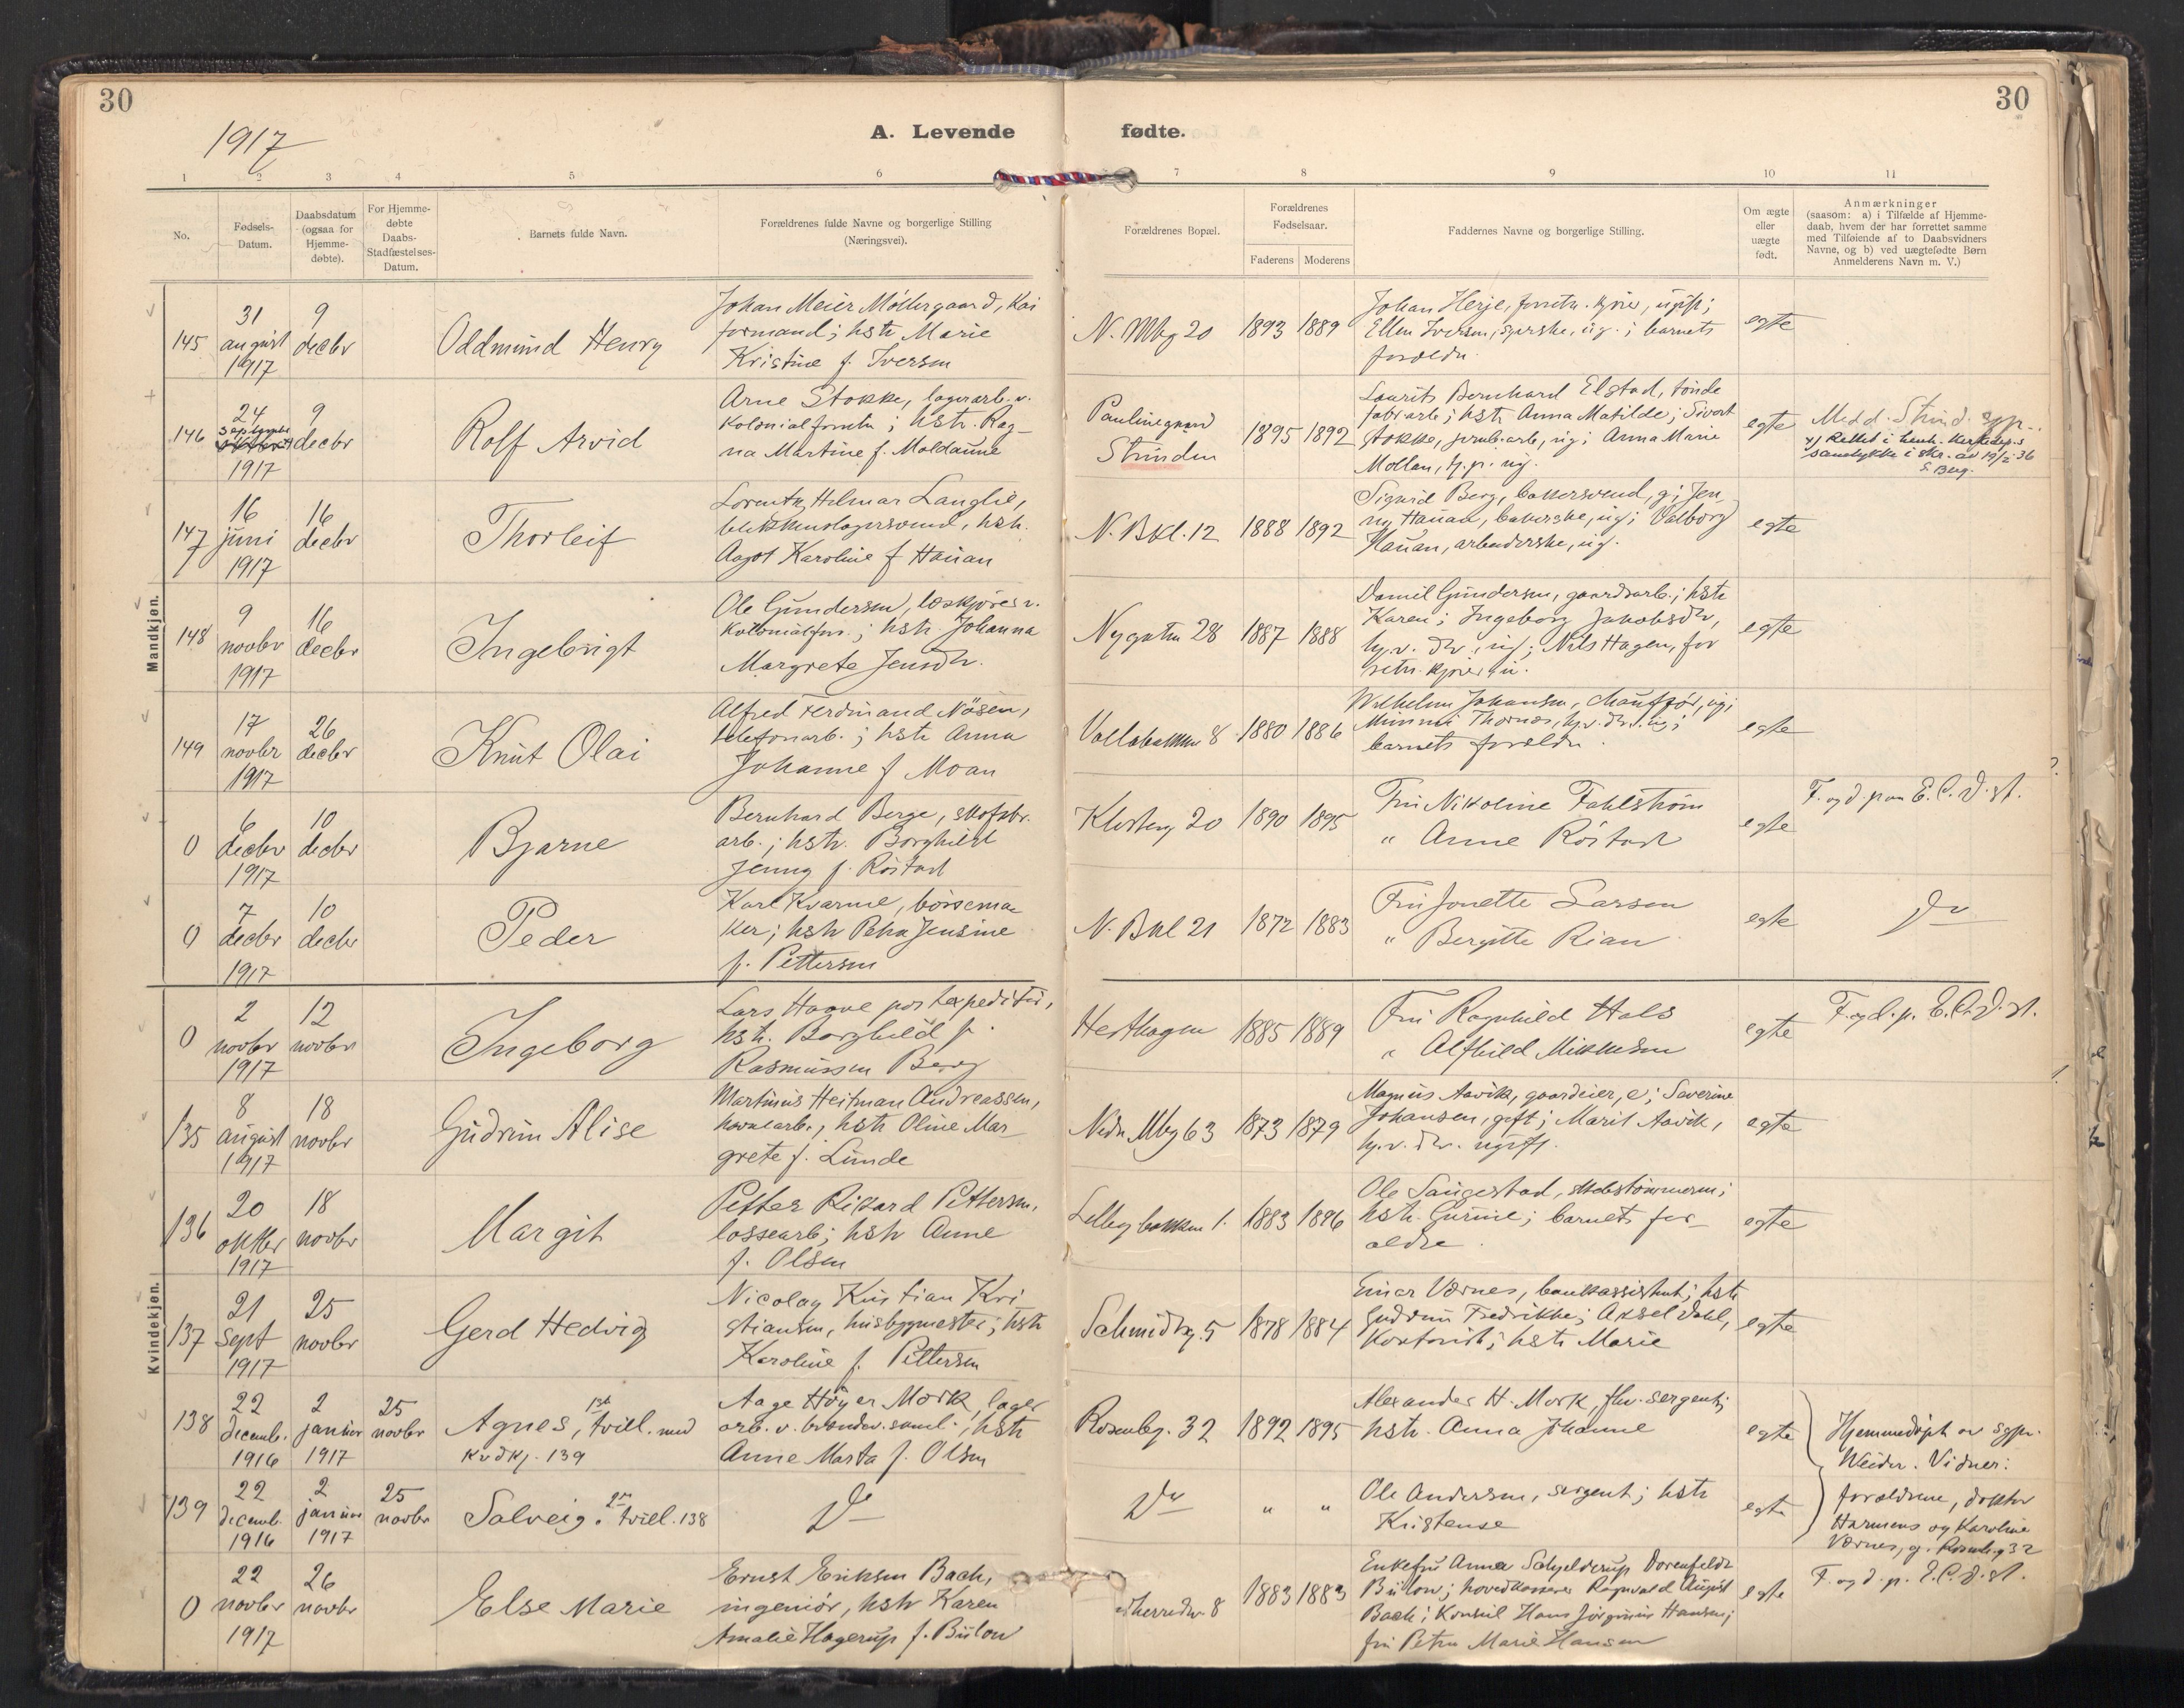 30
30
1917
A. Levende
fødte.
1 2 3 4 5 6 7 8 9 10 11
No.
Fødsels-
Datum.
Daabsdatum
(ogsaa for
Hjemme-
døbte).
For Hjemme-
døbte
Daabs-
Stadfæstelses-
Datum.
Barnets fulde Navn.
Forældrenes fulde Navne og borgerlige Stilling
(Næringsvei).
Forældrenes Bopæl.
Forældrenes
Fødselsaar.
Faderens
Moderens
Faddernes Navne og borgerlige Stilling.
Om ægte
eller
uægte
født.
Anmærkninger
(saasom: a) i Tilfælde af Hjemme-
daab, hvem der har forrettet samme
med Tilføiende af to Daabsvidners
Navne, og b) ved uægtefødte Børn
Anmelderens Navn m. V.)
Mandkjøn.
145
31
august
1917
9
decbr
Oddmund Henry
Johan Meier Møllergaard, kai
formand; hstr Marie
Kristine f. Iversen
N. Mbg 20
1893
1889
Johan Herje,
Ellen Iversen, syerske, ug.; barnets
forældre
egte
146
24
September
1917
9
decbr
Rolf Arvid
Arne Stokke, lagerarb. v.
Kolonialforretn; hstr. Rag-
na Martine f. Moldaune
Paulinegaard
Strinden
1895
1892
Laurits Bernhard Elstad, tønde
fabr.arb; hstr Anna Matilde; Sivert
Stokke, jernb.arb, ug; Anna Marie
Mollan, hj.p. ug.
egte
Medd. Strind. sgpr.
x) Rettet i henh. Kirkedep.s
samtykke i skr. av 19/2 36
S. Berg.
147
16
juni
1917
16
decbr
Thorleif
Lorentz Hilmar Langlie,
blikkenslagersvend, hstr.
Aagot Karoline f Hauan
N. Bkl. 12
1888
1892
Sigurd Berg, bakersvend, g; Jen
ny Hauan, bakerske, ug; Valborg
Hauan, arbeiderske, ug.
egte
148
9
novbr
1917
16
decbr
Ingebrigt
Ole Gundersen, løskjører v.
Kolonialforr.; hstr. Johanna
Margrete Jensdtr.
Nygatn 28
1887
1888
Daniel Gundersen, gaardsarb.; hstr
Karen; Ingeborg Jakobsdtr,
hj.v. dtr, ug; Nils Hagen, for
retn.kjører, u.
egte
149
17
novbr
1917
26
decbr
Knut Olai
Alfred Ferdinand Nøsen,
telefonarb.; hstr Anna
Johanne f Moan
Vollabakken 8
1880
1886
Wilhelm Johansen, chauffør, ug;
Mimmi Thornæs, hj.v. dtr. ug;
barnets forældre.
egte
0
6
decbr
1917
10
decbr
Bjarne
Bernhard Berge, skofabr.
arb.; hstr. Borghild
Jenny f. Røstad
Klosterg 20
1890
1895
Fru Nikoline Fahlstrøm
" Anne Røstad
egte
F. og d. paa E. C. D. st.
0
7
decbr
1917
10
decbr
Peder
Karl Kvarme, børsema-
ker; hstr Petra Jensine
f. Pettersen
N. Bkl 21
1872
1883
Fru Jonette Larsen
" Bergitte Rian
egte
Do
Kvindekjøn.
0
2
novbr
1917
12
novbr
Ingeborg
Lars Haave postexpeditør,
hstr. Borghild f.
Rasmussen Berg
Hesthagen
1885
1889
Fru Ragnhild Hals
" Alfhild Mikkelsen
egte
F. og d. p. E. C. D. st.
135
8
august
1917
18
novbr
Gudrun Alise
Martinus Heitman Andreassen,
havnearb., hstr Oline Mar
grete f. Lunde
Nedr. Mbg 63
1873
1879
Magnus Aavik, gaardeier, e; Saverine
Johansen, gift; Marit Aavik,
hj.v. dtr. ugift.
egte
136
20
oktbr
1917
18
novbr
Margit
Petter Rikard Pettersen,
lossearb; hstr Anne
f. Olsen
bakken 1.
1883
1886
Ole Saugestad, skibstømmerm;
hstr. Gurine; barnets for-
ældre.
egte
137
21
sept
1917
25
novbr
Gerd Hedvig
Nicolay Kristian Kri
stiansen, husbygmester; hstr
Karoline f. Pettersen
Schmidtsg. 5
1878
1884
Einar Værnes, bankassistent; hstr
Gudrun Fredrikke; Aksel Dahl,
kontorist; hstr Marie
egte
138
22
decemb.
1916
2
januar
1917
25
novbr
Agnes, 1ste tvill. med
kvdkj. 139
Aage Høyer Mørk, lager
arb. v. brændev.saml.; hstr
Anne Marta f. Olsen
Rosenbg. 32
1892
1895
Alexander H. Mørk, fhv. sergent;
hstr. Anna Johanne
egte
Hjemmedøpt av sgpr.
Weider. Vidner:
forældrene, doktor
Harmens og Karoline
Værnes, g. Rosenbg 32
139
22
decemb.
1916
2
januar
1917
25
novbr
Solveig. 2n tvill. 138
Do
Do
"
"
Ole Andersen, sergent; hstr
Kristense
egte
0
22
novbr
1917
26
novbr
Else Marie
Ernst Eriksen Bach,
ingeniør, hstr Karen
Amalie Hagerup f. Bülow
8
1883
1883
Enkefru Anna Schjelderup Dorenfeldt
Bülow; hovedkasserer Ragnvald August
Bach; Konsul Hans Jørginius Hansen;
fru Petra Marie Hansen
egte
F. og d. p. E. C. D. st.